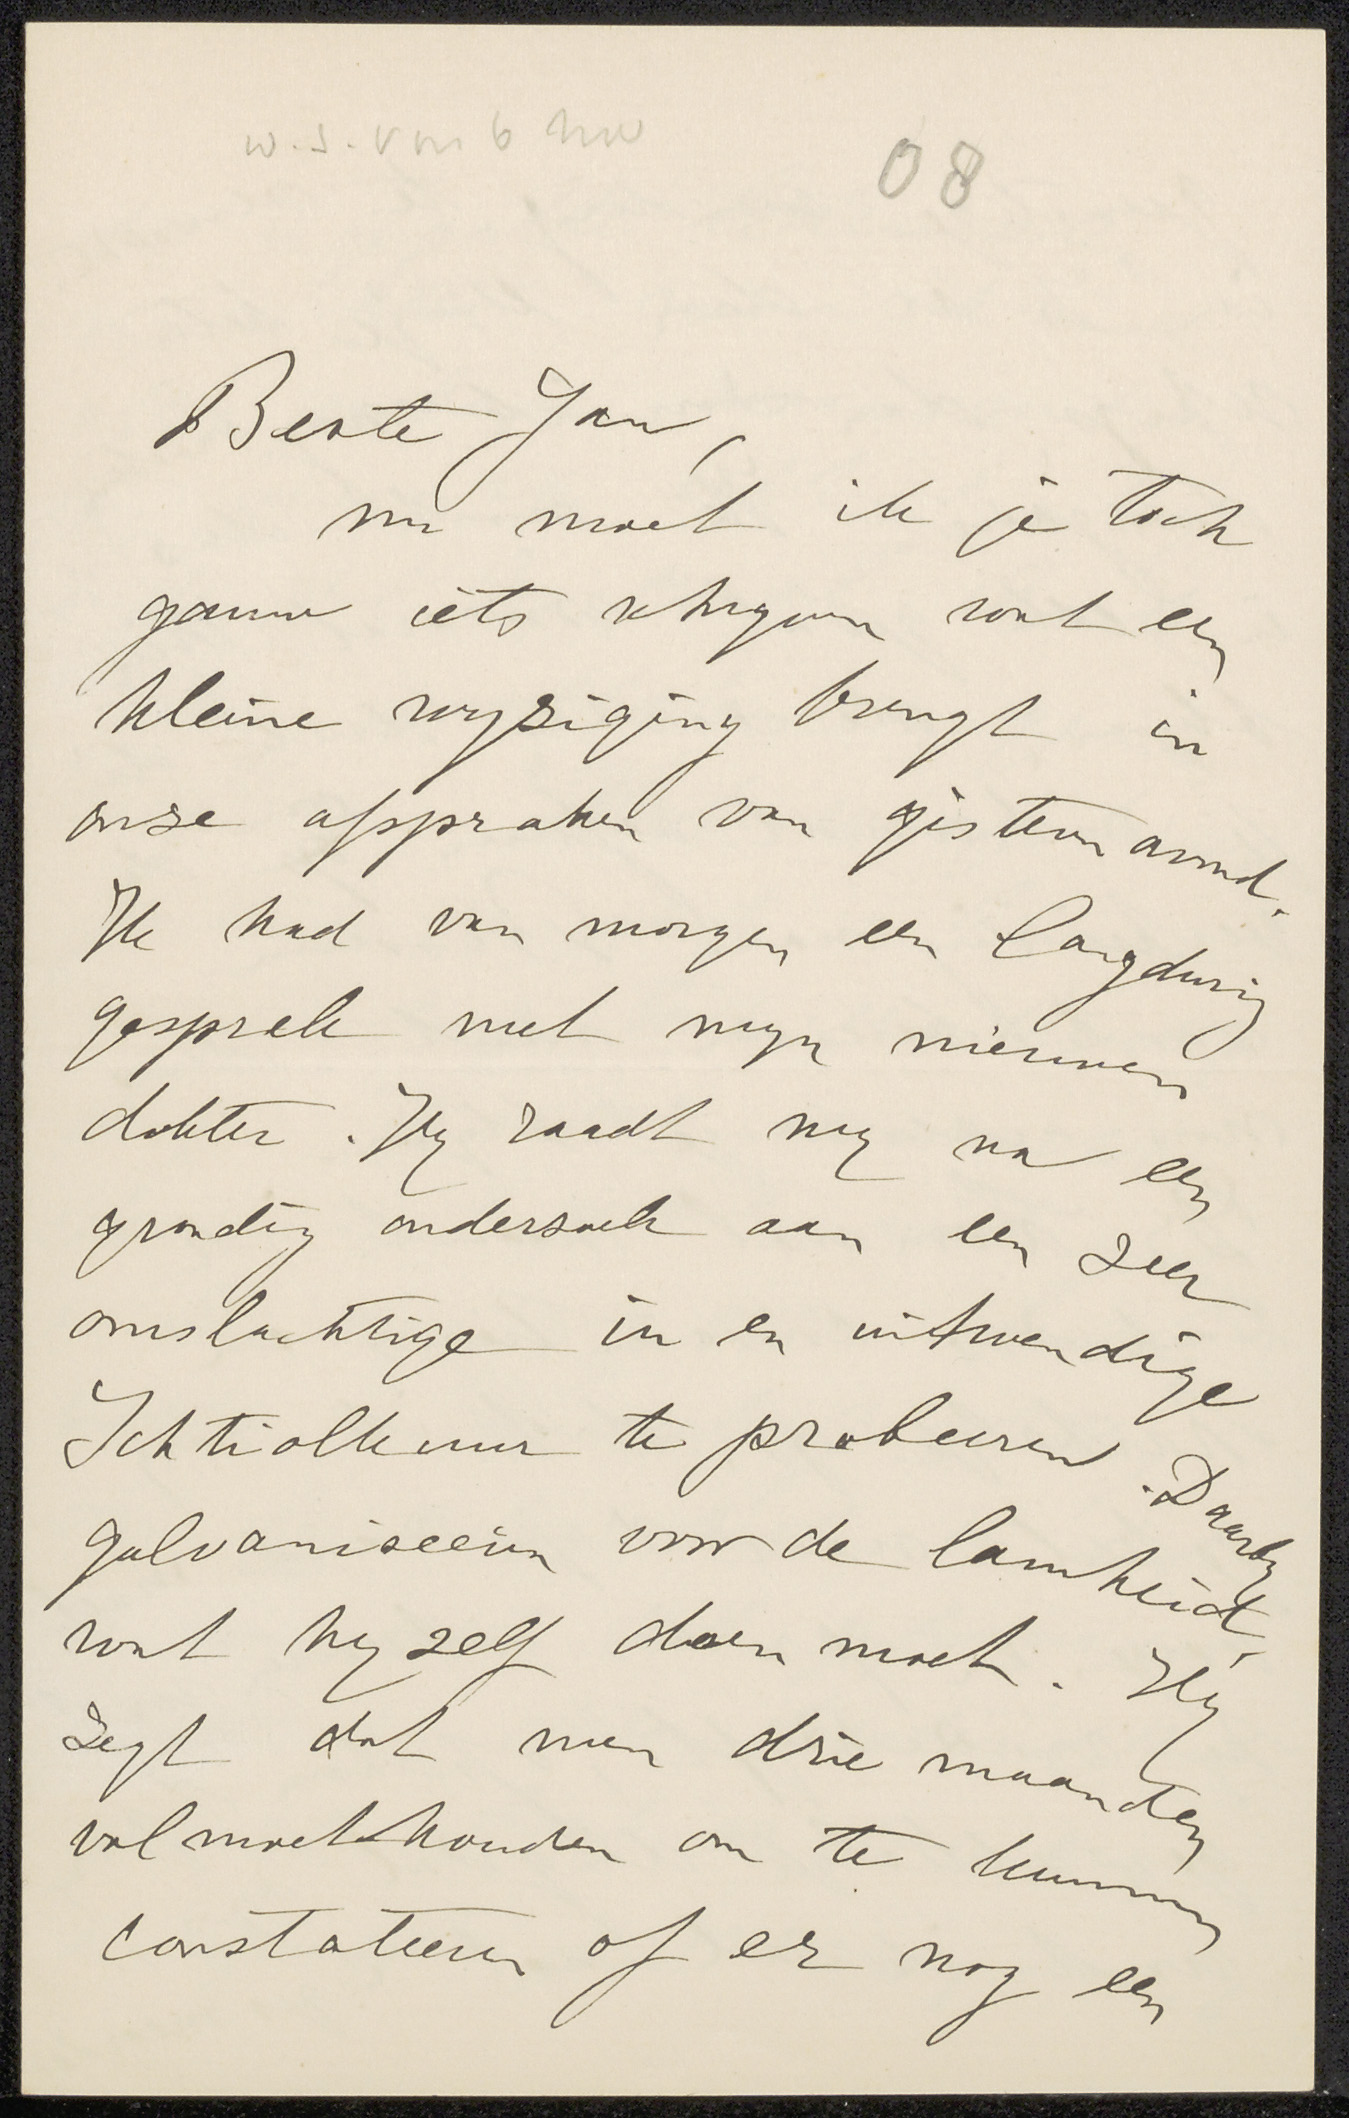 08
Beste Jan,
nu moet ik je toch
gauw iets schrijven wat een
kleine wyziging brengt in
onze afspraken van gisteren avond.
Ik had van morgen een langdurig
gesprek met myn nieuwen
dokter. Hy raadt my na een
grondig onderzoek aan een zeer
omslachtige in en uitwendige
Ichtiolkuur te probeeren. Daarby
galvaniseeren voor de lamheid,
wat hy zelf doen moet. Hy
zegt dat men drie maanden
vol moet houden om te kunnen
constateeren of er nog een